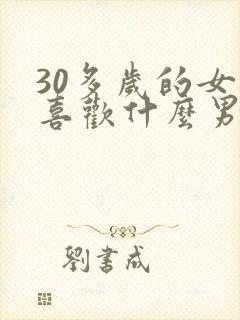 30多歲的女
喜歡什麼男
劉書成